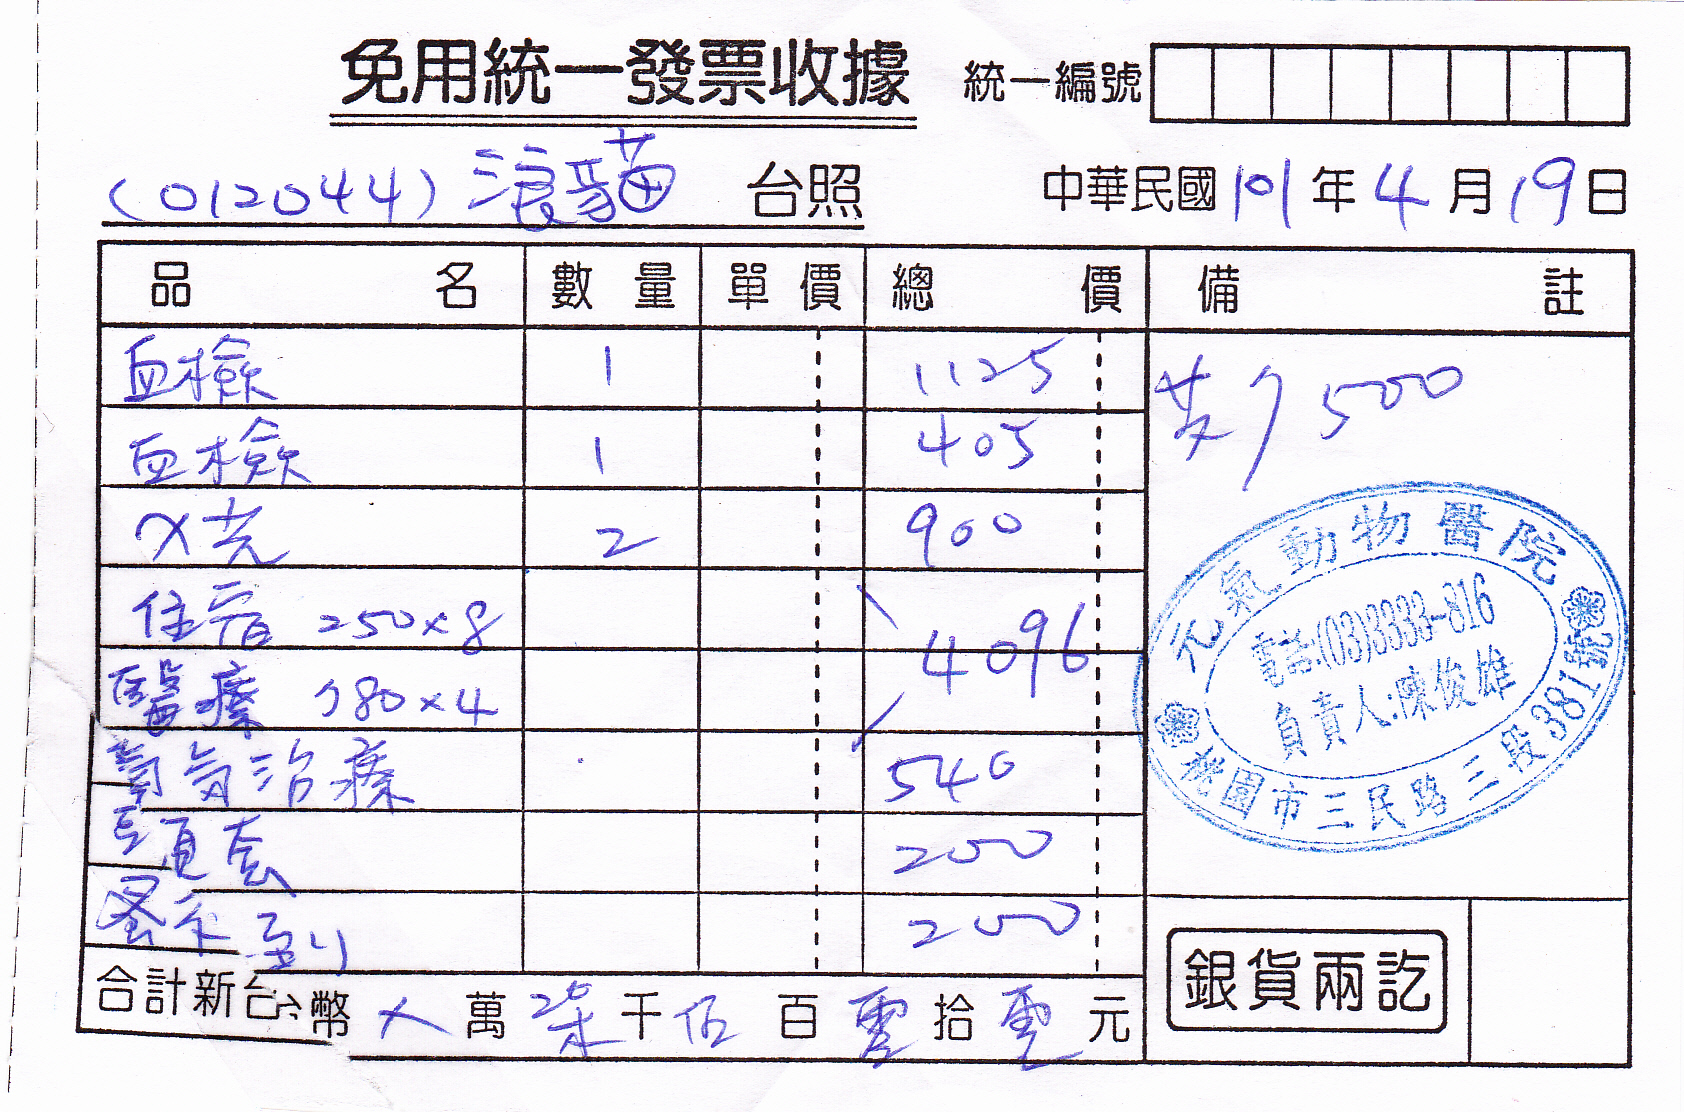 免用統一發票收據 統一編號
(012044) 浪貓 台照 中華民國 101 年 4 月 19 日
品名 數量 單價 總價 備註
血檢 1 1125
血檢 1 405
X光 2 900
住宿 250×8
醫療 780×4
4096
氧氣治療 540
頭套 200
蚤不到 200
500
元氣動物醫院
電話:(03)3333-816
負責人:陳俊雄
桃園市三民路三段381號
合計新台幣 萬 柒 千 伍 百 零 拾 零 元
銀貨兩訖